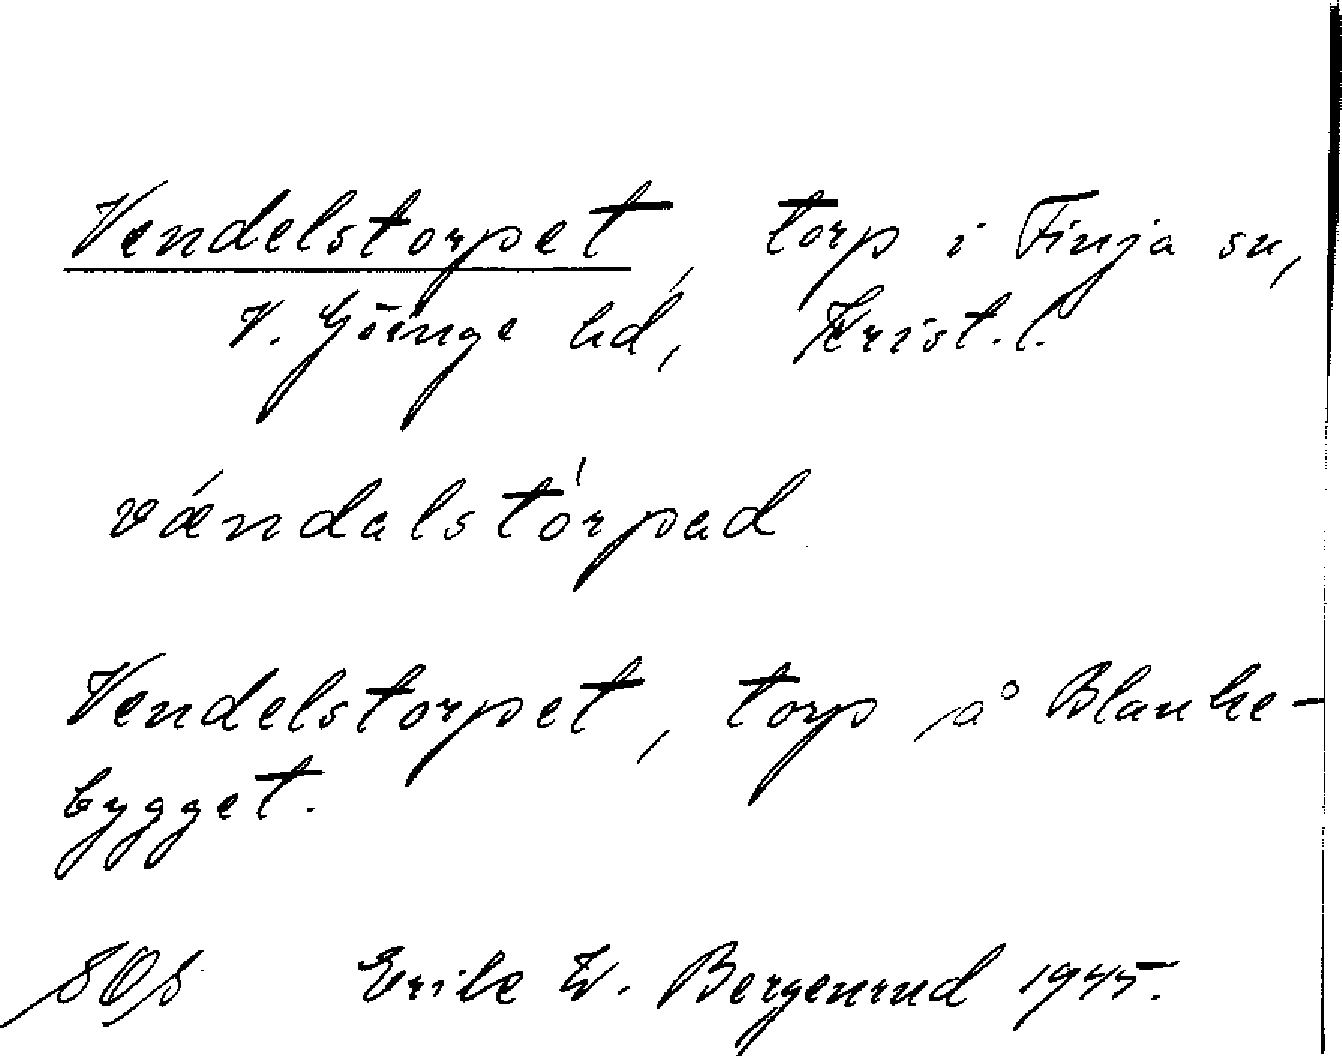 Vendelstorpet, torp i Finja sn,
V. Göinge hd, Krist. l.
vǽndalstórpad
Vendelstorpet, torp på Blanke-
bygget.
Erik W. Bergenrud 1945.